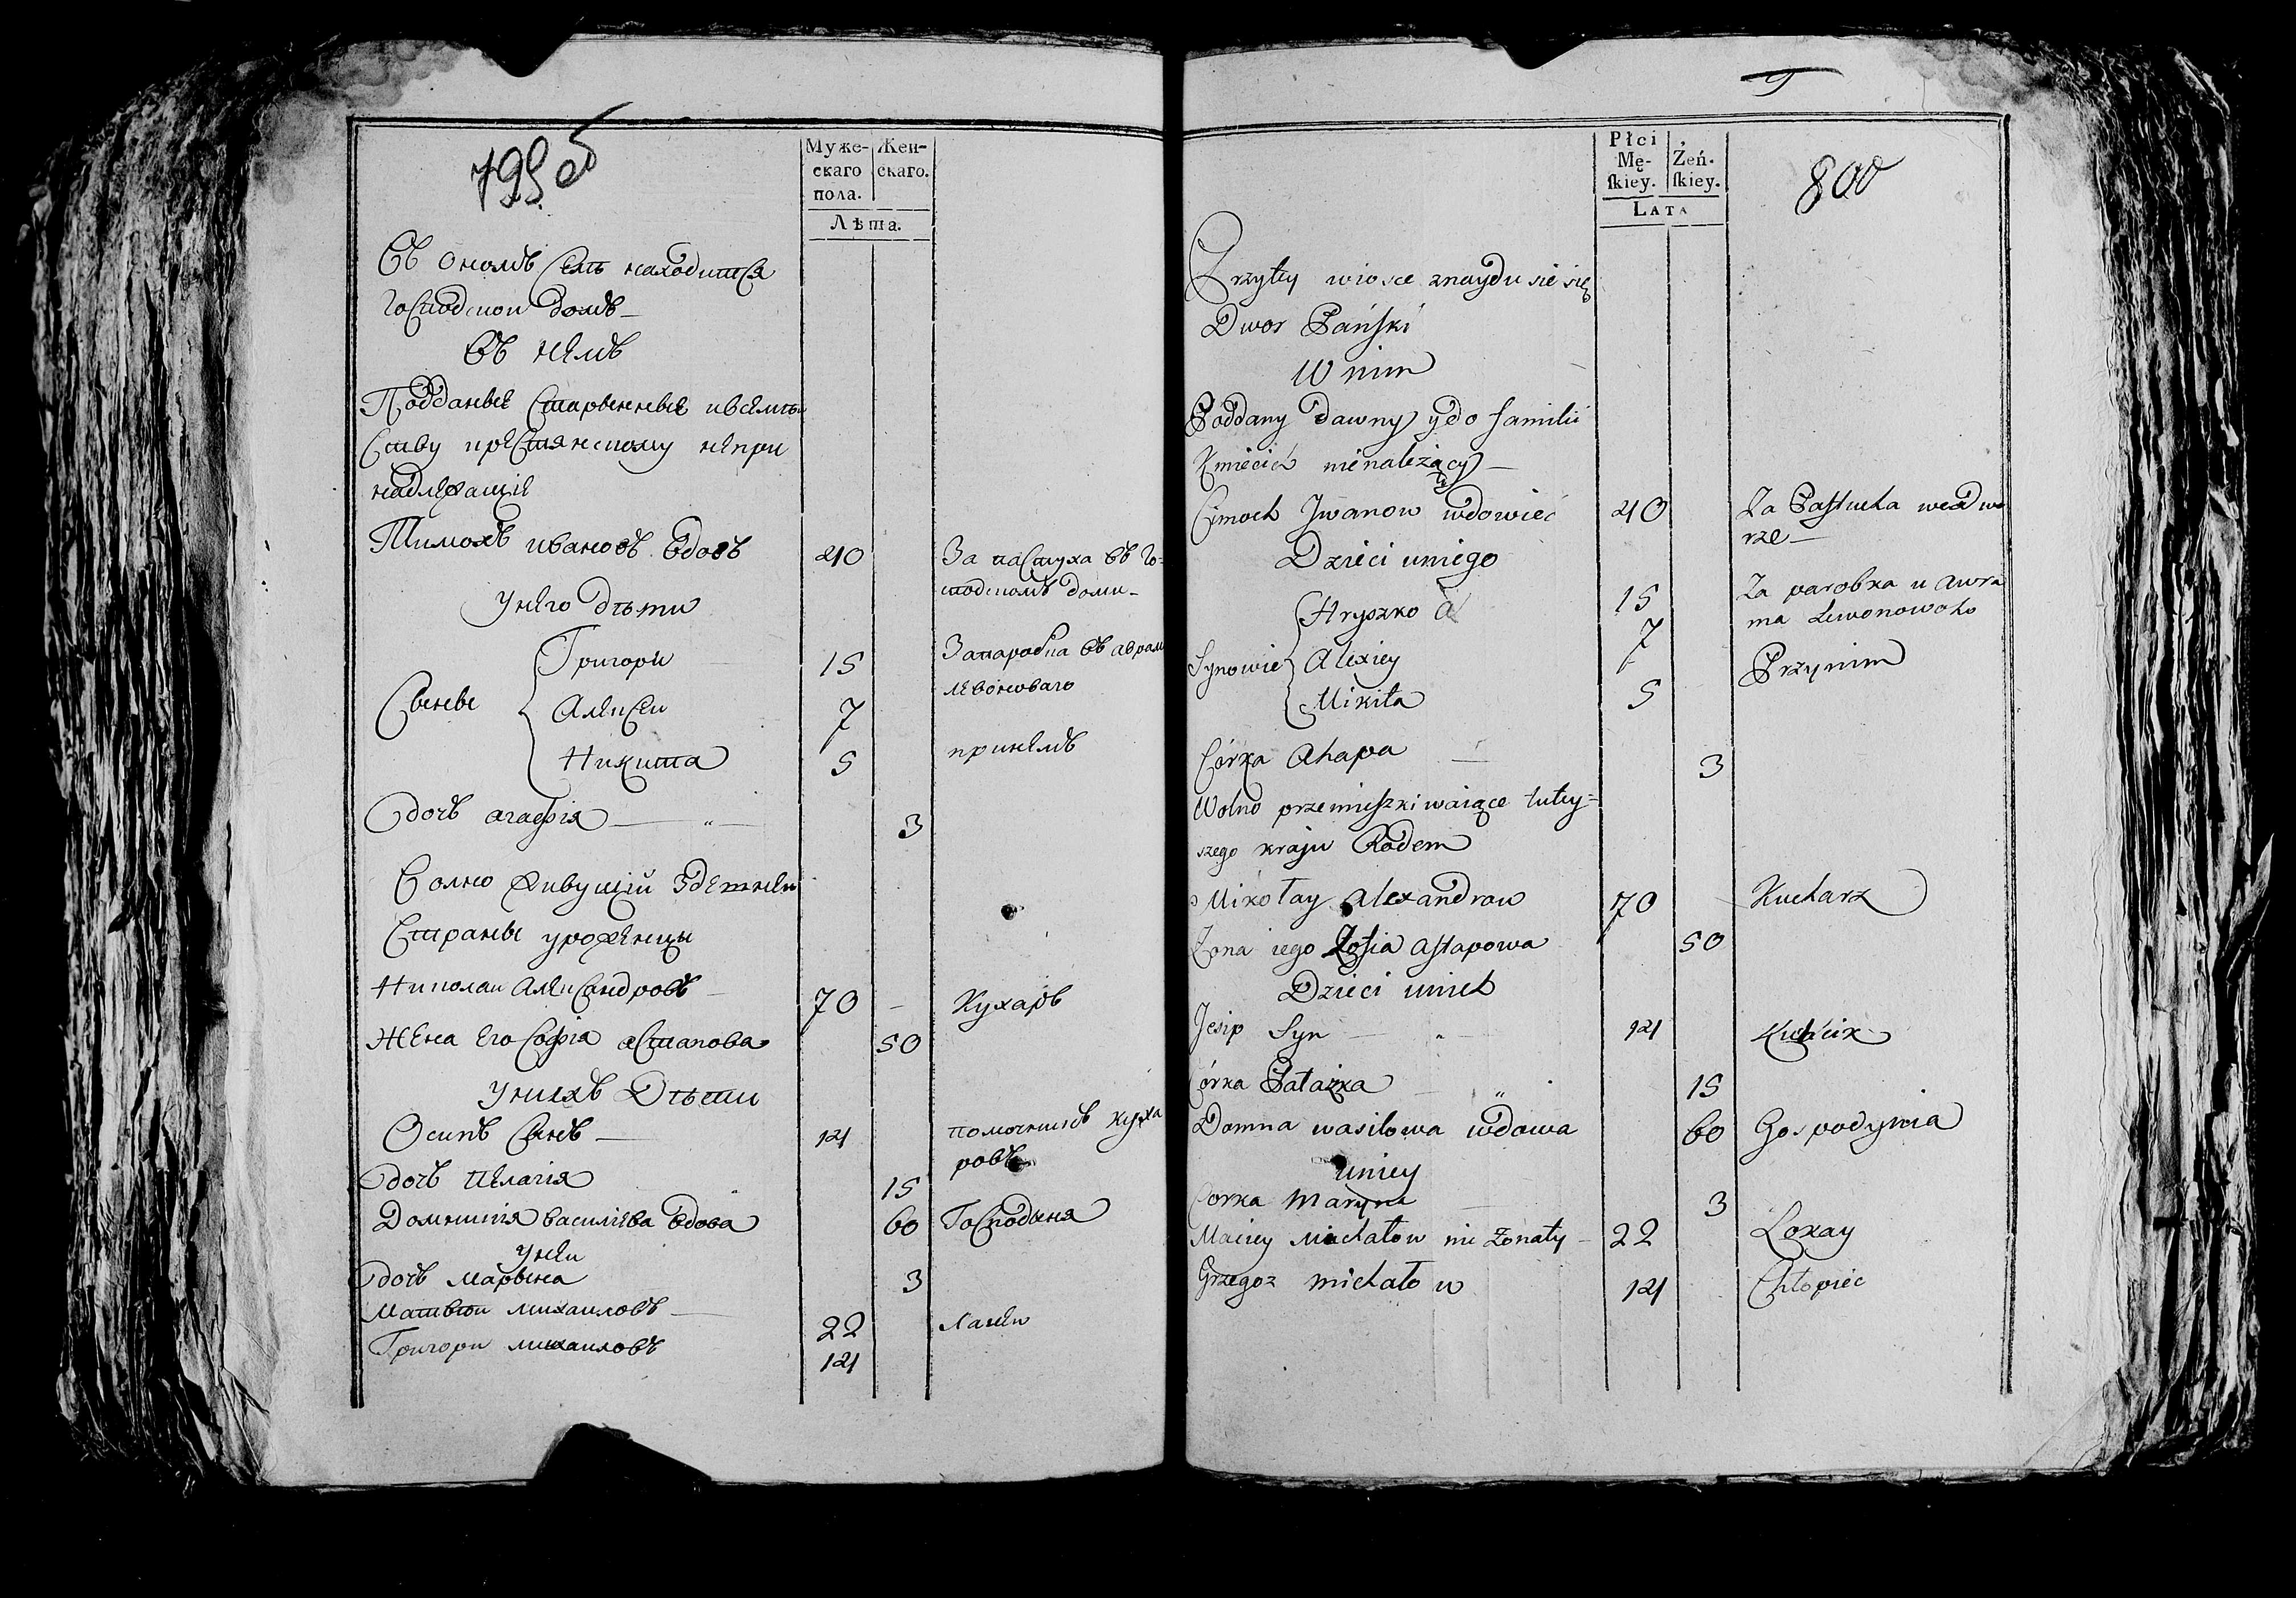 799 об
Муже- Жен-
скаго скаго.
пола.
Лѣта.
Въ ономъ селѣ находитса
господскои домъ
въ немъ
Подданые старынные и всемѣ
ству крестянскому не при
надлежащие
Тимохъ ивановъ вдовъ 40 За пастуха въ го-
сподскомъ доми
у него дѣти
Григори 15 За паробка въ аврам
левоноваго
Сыны Алексеи 7
Никита 5 при немъ
дочъ агафия 3
волно живущiи здешнеи
страны уроженцы
Николаи Александровъ 70 Кухаръ
Жена его софiя астапова 50
у нихъ дѣти
Осипъ сынъ 14 помочникъ куха
ровъ
дочъ пелагiя 15
Домникiя василева вдова 60 Господыня
у неи
дочъ марына 3
матвѣи михаиловъ 22 Лакеи
Григори михаиловъ 14
9
800
Płci
Mę- Żeń-
skiey. skiey.
Lata
Przytey wiosce znayduie się
Dwor Pański
W nim
Poddany dawny y do familii
Kmieciey nienależący
Cimoch Jwanow wdowiec 40 Za Pastucha we dwo
rze
Dzieci uniego
Hryszko 15 Za parobka u awra
ma Lewonowoho
Synowie Alexiey 7 Przynim
Mikita 5
Córka Ahapa 3
Wolno przemieszkiwaiące tutey=
szego kraju Rodem
Mikołay Alexandrow 70 Kucharz
Żona iego Zosia Astapowa 50
Dzieci unich
Jesip Syn 14 Kuchcik
Córka Pałażka 15
Domna wasilowa wdowa 60 Gospodynia
uniey
Corka Maryna 3
Maciey Michałow nie żonaty 22 Lokay
Grzegoz Michałow 14 Chłopiec